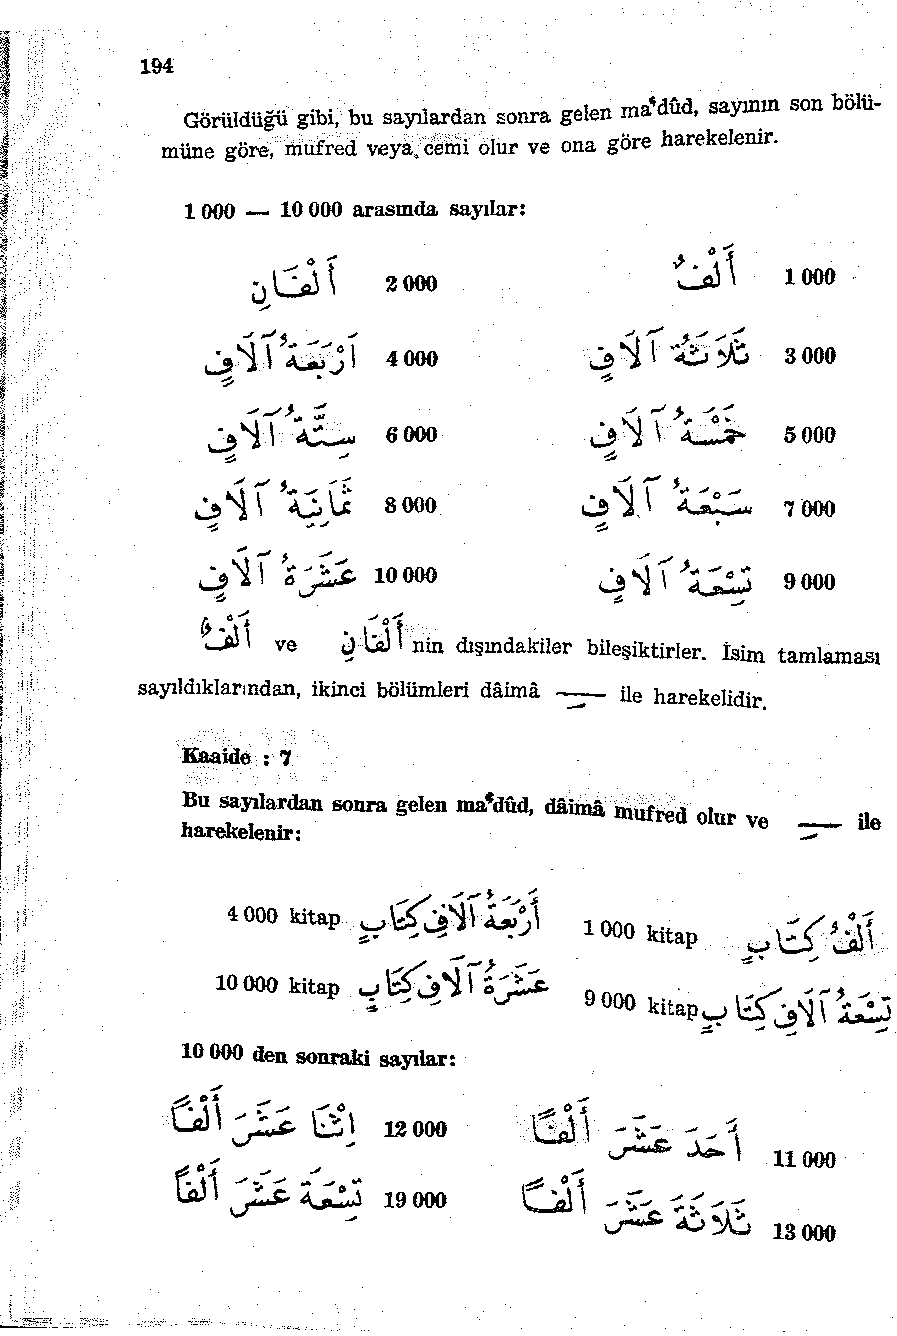 194
Görüldüğü gibi, bu sayılardan sonra gelen ma'dûd, sayının son bölü-
müne göre, mufred veya cemi olur ve ona göre harekelenir.
1 000 — 10 000 arasında sayılar:
أَلْفَانِ 2 000 أَلْفٌ 1 000
أَرْبَعَةُ آلَافٍ 4 000 ثَلَاثَةُ آلَافٍ 3 000
سِتَّةُ آلَافٍ 6 000 خَمْسَةُ آلَافٍ 5 000
ثَمَانِيَةُ آلَافٍ 8 000 سَبْعَةُ آلَافٍ 7 000
عَشَرَةُ آلَافٍ 10 000 تِسْعَةُ آلَافٍ 9 000
أَلْفٌ ve أَلْفَانِ nin dışındakiler bileşiktirler. İsim tamlaması
sayıldıklarından, ikinci bölümleri dâimâ ــٍـ ile harekelidir.
Kaaide : 7
Bu sayılardan sonra gelen ma'dûd, dâimâ mufred olur ve ــٍـ ile
harekelenir:
4 000 kitap أَرْبَعَةُ آلَافِ كِتَابٍ 1 000 kitap أَلْفُ كِتَابٍ
10 000 kitap عَشَرَةُ آلَافِ كِتَابٍ 9 000 kitap تِسْعَةُ آلَافِ كِتَابٍ
10 000 den sonraki sayılar:
اِثْنَا عَشَرَ أَلْفًا 12 000 أَحَدَ عَشَرَ أَلْفًا 11 000
تِسْعَةَ عَشَرَ أَلْفًا 19 000 ثَلَاثَةَ عَشَرَ أَلْفًا 13 000